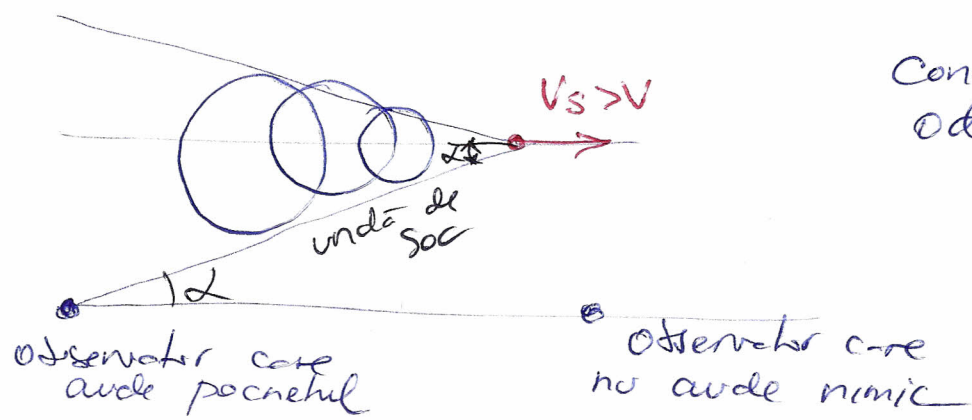 Vs > V
Con
Od
α
undă de
șoc
α
Observator care
aude pocnetul
Observator care
nu aude nimic